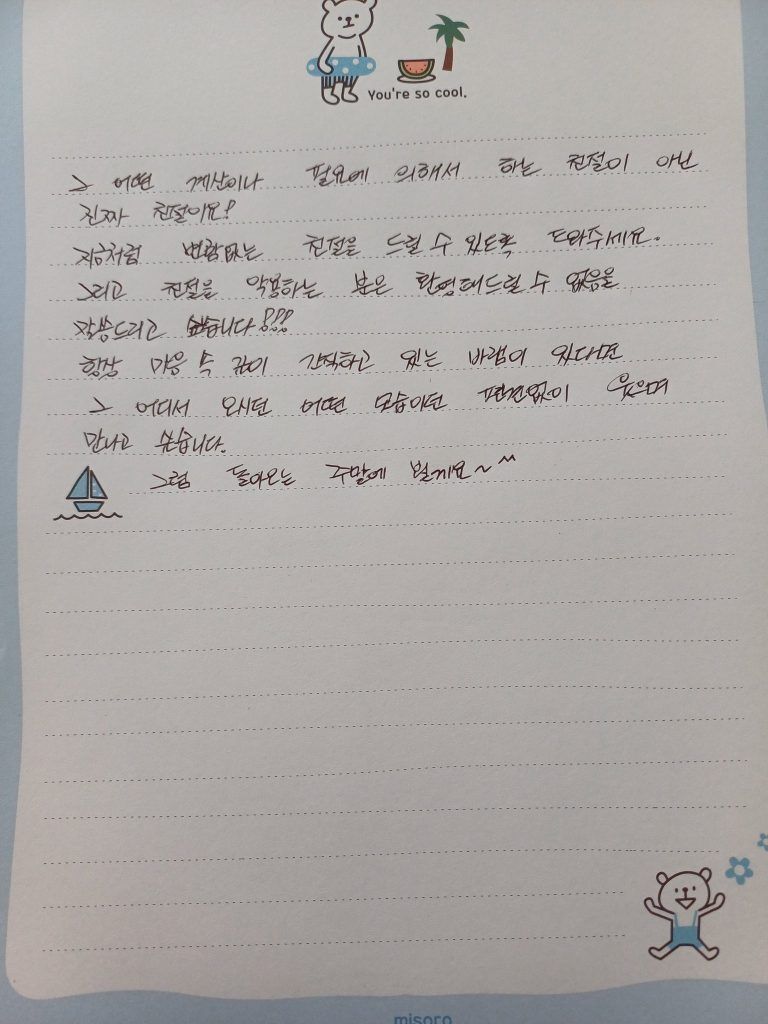 You're so cool.
> 어떤 계산이나 필요에 의해서 하는 친절이 아닌
진짜 친절이요!
지금처럼 변함없는 친절을 드릴 수 있도록 도와주세요.
그리고 친절을 악용하는 분은 환영해드릴 수 없음을
말씀드리고 싶습니다!!!
항상 마음 속 깊이 간직하고 있는 바램이 있다면
> 어디서 오시던 어떤 모습이던 편견없이 웃으며
만나고 싶습니다.
그럼 돌아오는 주말에 뵐게요~^^
misoro